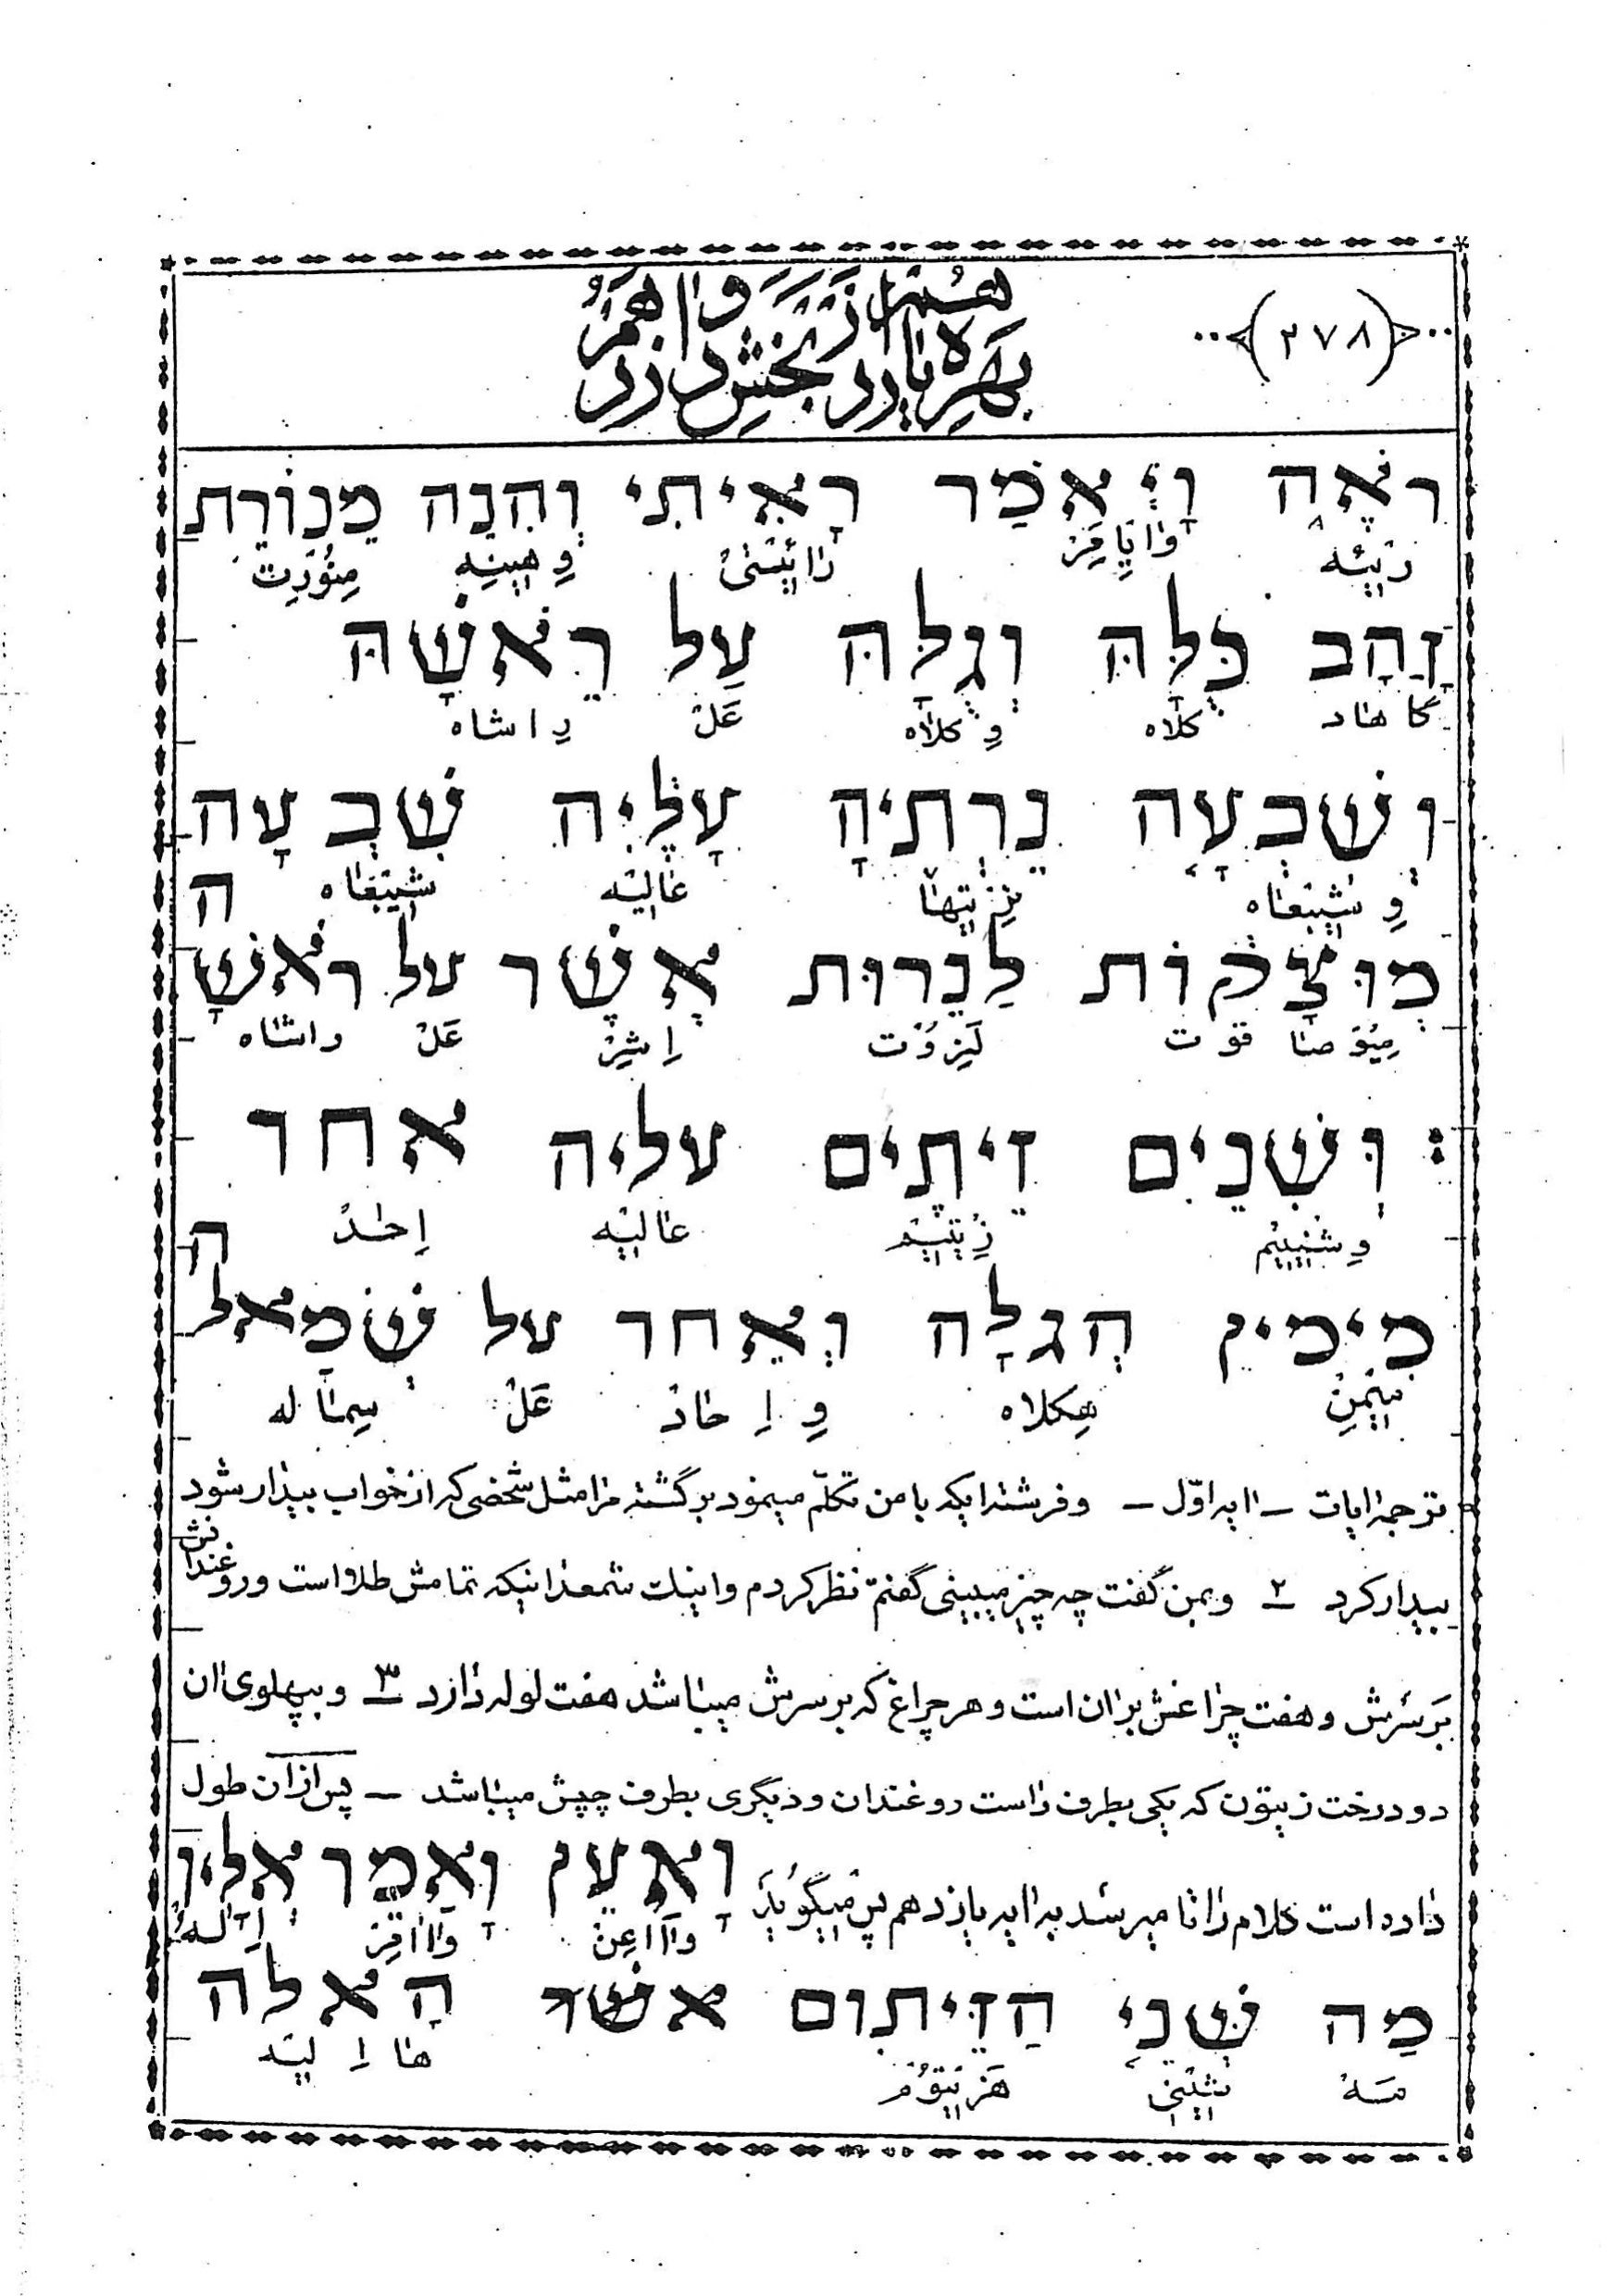 (۲۷۸)
רֹאֶה וָיְאֹמַר רָאִיתִי וְהִנֵה מְנוֹרַת
رَئِه وَایَامِرْ رَائیتیْ وِهینِه مِنُوْرِت
זָהָב כֻּלָּהּ וְגֻלָּהּ עַל רֵאֹשָׁהּ
كاهاد كلاه وِكلاه عَلْ رِاشاه
וְשִׁבְעָה נֵרְתֶיהָ עָלֶיִה שִׁבְעָה
وِشیبْعاه نِرْتیها عالیه شیبعاه ה
מֻוּצָקוֹת לַנֵרוּת אֲשֶׁר על רֹאשָׁ
مِیُوْصا قوْت لَیِزوُت اِشِرْ عَلْ راشاه
: וְּשְׁנֵיִם זֵיתִים עליה אחד
وِشْنیِیْم زِیتیِیْم عالیه اِحادْ ה
מִימין הְגלָה וְאֵחד על שְׁמֹאל
مییْمِنْ هِكلاه وِ اِحادْ عَلْ سِماله
ترجمه ایات – ایه اوّل – وفرشته ایكه با من تكلّم میمود برگشته مرا مثل شخصی كه از خواب بیدار شود
بیدار كرد ۲ وبمن گفت چه چیز میبینی گفتم نظر كردم واینك شمعدانیكه تمامش طلا است وروغندانش
بَرسَرش وهفت چراغش بر ان است وهر چراغ كه بر سرش میباشد هفت لوله دارد ۳ وبپهلوی ان
دو درخت زیتون كه یكی بطرف راست روغندان ودیگری بطرف چپش میباشد – پس از ان طول
داده است كلام را تا میرسد به ایه یازدهم پس میگوید וָאַעַן וָאֹמַר אֵלָיו
وَااَعِنْ وَاامِرْ اِلاَلهُ
מַה שְּׁנֵי הַזֵיתִום אשר הָאלה
مَهْ شِنیْ هَزیتوُم ها اِلیه